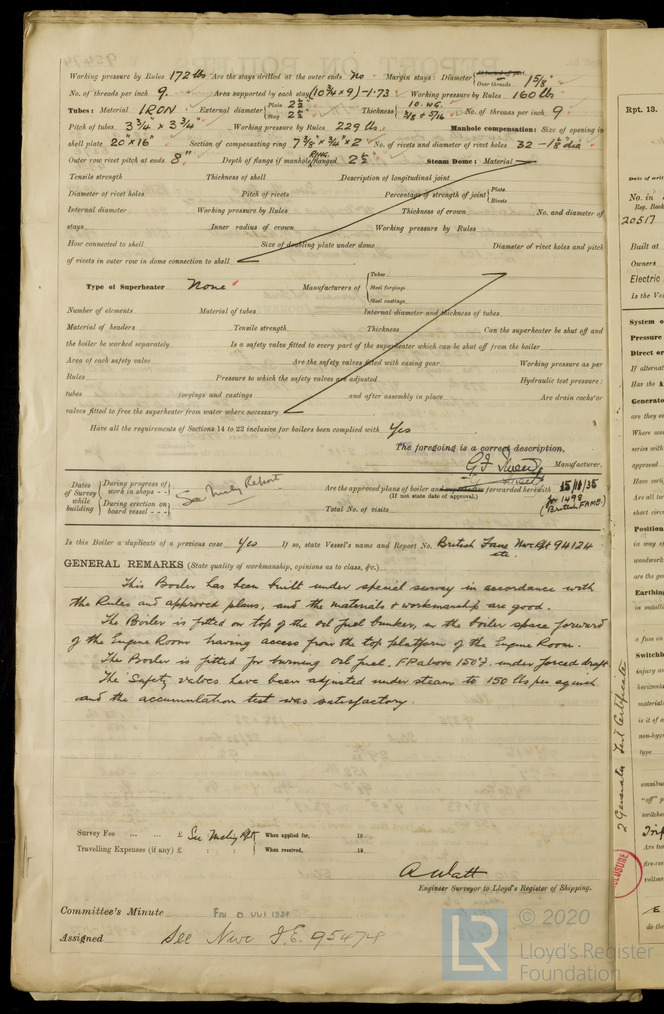 Working pressure by Rules 172 lbs Are the stays drilled at the outer ends No Margin stays: Diameter { At turned off part, or Over threads 1 5/8"
No. of threads per inch 9. Area supported by each stay (10 3/4 x 9) - 1.73 Working pressure by Rules 160 lbs
Tubes: Material IRON External diameter { Plain 2 1/2" Stay 2 1/2" Thickness { 10. WG. 3/8 & 5/16 No. of threads per inch 9
Pitch of tubes 3 3/4" x 3 3/4" Working pressure by Rules 229 lbs. Manhole compensation: Size of opening in
shell plate 20" x 16" Section of compensating ring No. of rivets and diameter of rivet holes
Outer row rivet pitch at ends 8" Depth of flange if manhole flanged RING. Steam Dome: Material
Tensile strength Thickness of shell Description of longitudinal joint
Diameter of rivet holes Pitch of rivets Percentage of strength of joint { Plate Rivets
Internal diameter Working pressure by Rules Thickness of crown No. and diameter of
stays Inner radius of crown Working pressure by Rules
How connected to shell Size of doubling plate under dome Diameter of rivet holes and pitch
of rivets in outer row in dome connection to shell
Type of Superheater None Manufacturers of { Tubes Steel forgings Steel castings
Number of elements Material of tubes Internal diameter and thickness of tubes
Material of headers Tensile strength Thickness Can the superheater be shut off and
the boiler be worked separately Is a safety valve fitted to every part of the superheater which can be shut off from the boiler
Area of each safety valve Are the safety valves fitted with easing gear Working pressure as per
Rules Pressure to which the safety valves are adjusted Hydraulic test pressure:
tubes forgings and castings and after assembly in place Are drain cocks or
valves fitted to free the superheater from water where necessary
Have all the requirements of Sections 14 to 22 inclusive for boilers been complied with Yes
The foregoing is a correct description,
Manufacturer.
Dates of Survey while building { During progress of work in shops - - During erection on board vessel - - - See Mchy Report
Are the approved plans of boiler and forwarded herewith 15/10/35
(If not state date of approval.) for 1498 (British FAME)
Total No. of visits
Is this Boiler a duplicate of a previous case Yes If so, state Vessel's name and Report No. British Fame Nwc Rpt 94124
etc.
GENERAL REMARKS (State quality of workmanship, opinions as to class, &c.)
This Boiler has been built under special survey in accordance with
the Rules and approved plans, and the materials & workmanship are good.
The Boiler is fitted on top of the oil fuel bunker, in the boiler space forward
of the Engine Room having access from the top platform of the Engine Room.
The Boiler is fitted for burning Oil fuel, F.P above 150°F. under forced draft.
The Safety valves have been adjusted under steam to 150 lbs per sq inch
and the accumulation test was satisfactory.
Survey Fee ... ... £ See Mchy Rpt When applied for, 19
Travelling Expenses (if any) £ : : When received, 19
A Watt
Engineer Surveyor to Lloyd's Register of Shipping.
Committee's Minute
Assigned See Nwc J.E. 95474
© 2020
LR Lloyd's Register
Foundation
2 Generator Test Certificate
Rpt. 13.
No. in
Reg. Book
20517
Built at
Owners
Electric
Is the Ves
System o
Pressure
Direct or
If alternat
Has the A
Generato
are they o
Position
Earthing
Switchb